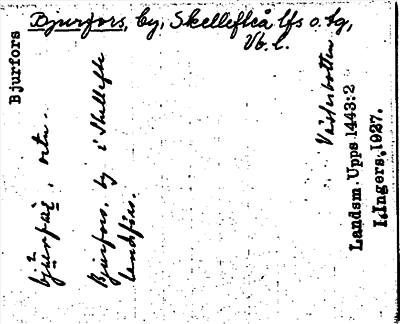 Bjurfors, by, Skellefteå lfs o. tg,
Vb. l.
Bjurfors
ortn.
Bjurfors, by i Skellefte
landsförs.
Västerbotten
Landsm. Upps. 1443:2
I. Ingers, 1927.